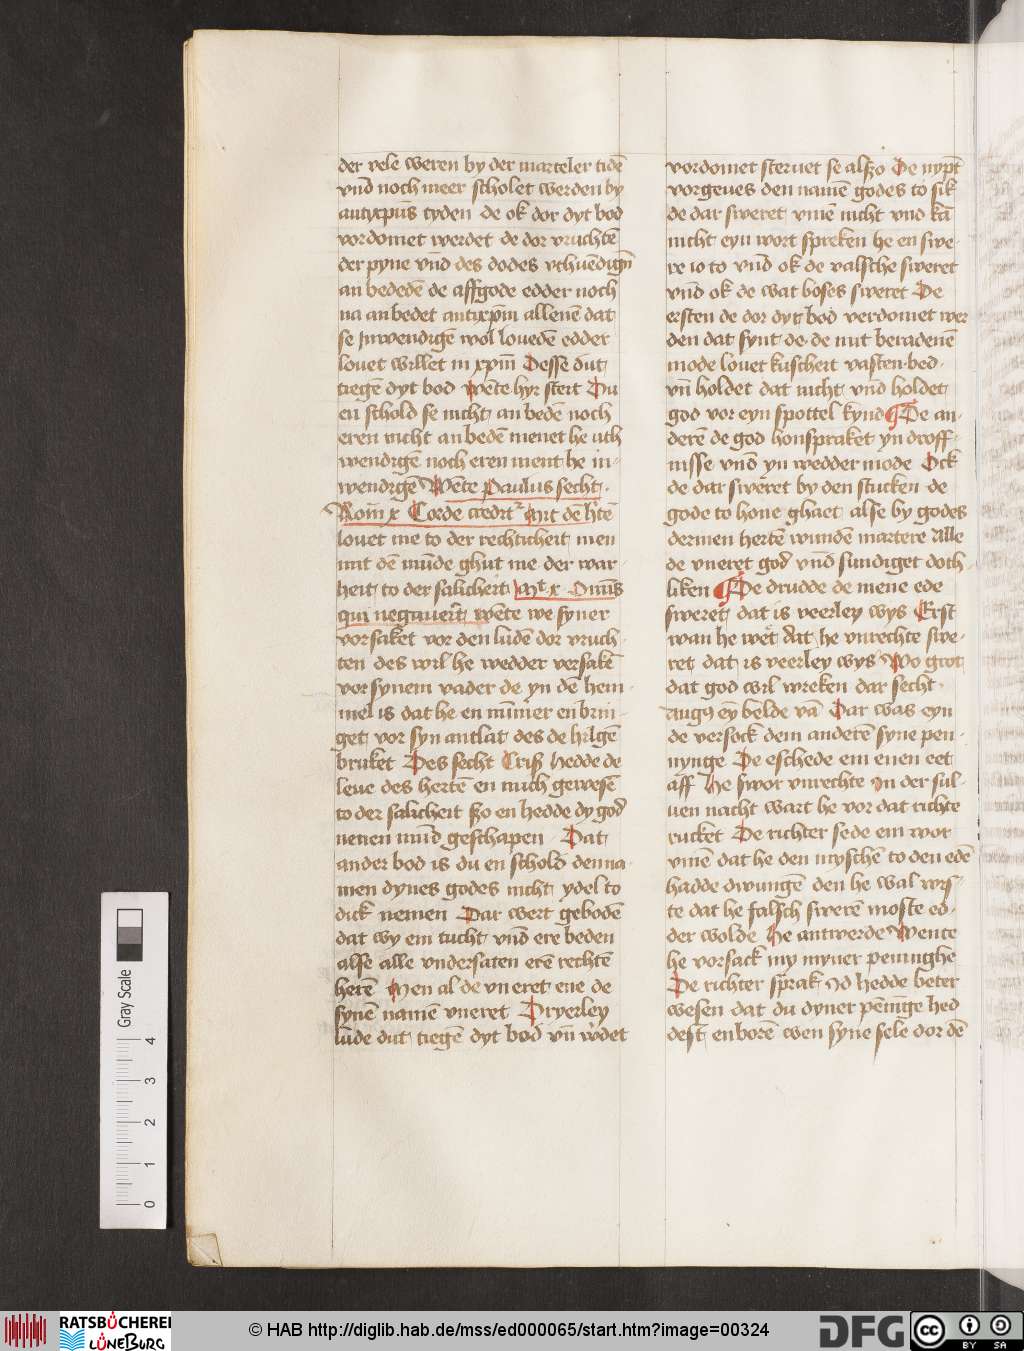 der vele weren by der marteler tidē
vnd noch meer scholet werden by
antixpūs tyden de ok dor dyt bod
vordomet werdet de dor vruchtē
der pyne vnd des dodes vthuēdigē
an bededē de affgode edder noch
na anbedet antixpm̄ allenē dat
se inwendigē wol louedē edder
louet willet in xpm̄ Desse dūt
tiegē dyt bod Wēte hyr steit Du
en schold se nicht an bedē noch
eren nicht an bedēn menet he uth
wendigē noch eren ment he in-
wendigē Wēte Paulus secht
Rom̄ x Corde credit² Mit dē htē
louet me to der rechticheit men
mit dē mūde ghut me der war
heit to der salicheit Mt x Omīs
qui negauerīt wēte we syner
vorsaket vor den ludēn dor vruch
ten des wil he wedder versakē
vor synem vader de yn dē hem
mel is dat he en nūmer en brin
get vor syn antlāt des de hilgē
bruket Des secht Criß hedde de
leue des hertē en nuch gewesē
to der salicheit ßo en hedde dy god
nenen mūd geschapen Dat
ander bod is du en schold den na
men dynes godes nicht ydel to
dick nemen Dar wert gebodē
dat wy em tucht vnd ere beden
alse alle vndersaten erē rechtē
herē Men al de vneret ene de
synē namē vneret Dryerley
lude dūt tiegē dyt bod vn̄ werdet
vordomet steruet se alßo De nypt
vorgeues den namē godes to sik
de dar sweret vmē nicht vnd kā
nicht eyn wort spreken he en swe
re io to vnd ok de valsche sweret
vnd ok de wat boses sweret De
ersten de dor dyt bod verdomet wer
den dat synt de de mit beradenē
mode louet kuscheit vasten bed
vn̄ holdet dat nicht vnd holdet
god vor eyn spottel kynd De an-
derē de god honspraket yn droff
nisse vnd yn wedder mode Ock
de dar sweret by den stucken de
gode to hone ghaet alse by godes
dermen hertē wunden martere Alle
de vneret god vnd sundiget doch
liken De drudde de mene ede
sweret dat is veerley wys Erst
wan he wet dat he vnrechte swe
ret dat is veerley wys Wo grot
dat god wil wreken dar secht
Augꝰ eȳ belde vā Dar was eyn
de versock dem anderē syne pen
nynge De eschede em enen eet
aff He swor vnrechte In der sul
uen nacht wart he vor dat richte
rucket De richter sede em wor
vmē dat he den myschē to den edē
hadde dwungē den he wal wis
te dat he falsch swerē moste ed
der wolde He antwerde Wente
he vorsack my myner penninghe
De richter sprak Id hedde beter
wesen dat du dynet pēnige hed
dest enborē wen syne sele dor dē
Gray Scale
4
3
2
1
0
RATSBÜCHEREI
LÜNEBURG
© HAB http://diglib.hab.de/mss/ed000065/start.htm?image=00324
DFG
CC BY SA